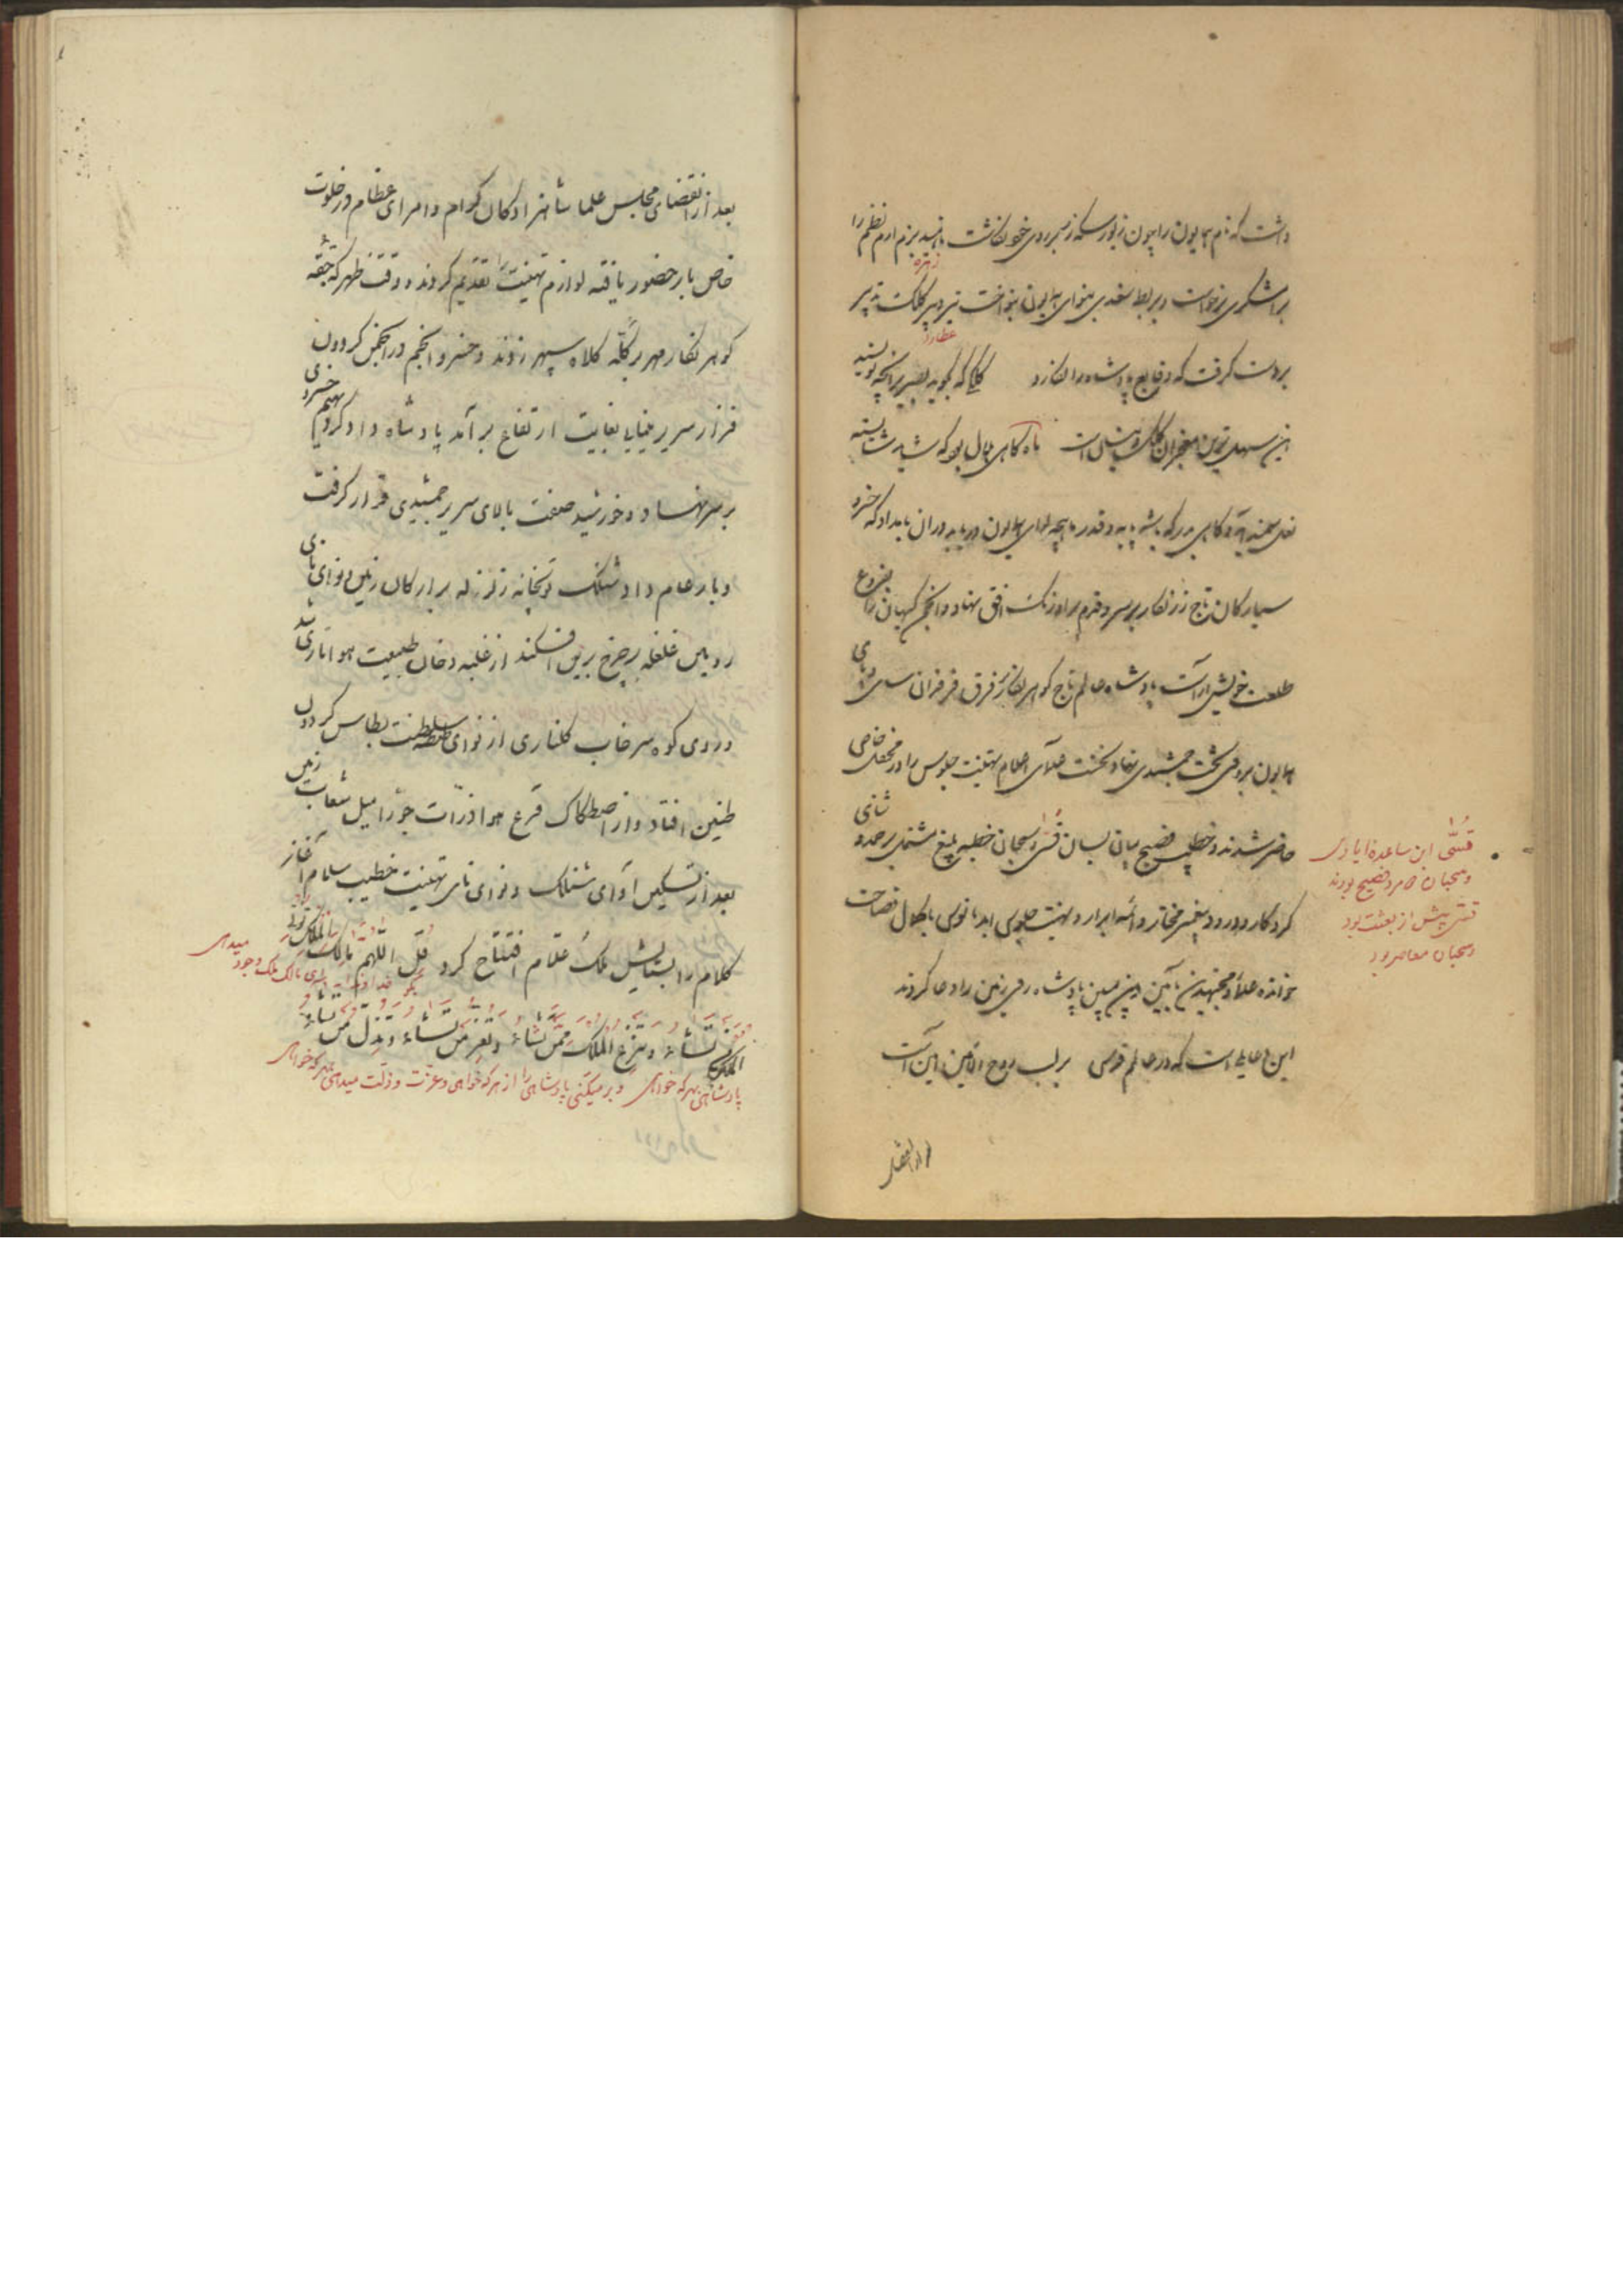 داشت که نام همایون را چون زیور سکه زر بر روی خود نگاشت ناهید بزم ارم نظم را
زهره
برامشگری برخواست و بربط سغدی بنوای همایون بنواخت تیر دبیر کلک تدبیر
عطارد
بدست گرفت که وقایع پادشاه را نگارد کلکی که بگوید بصریر آنچه نویسد
این سهل‌ترین معجز آن کلک و بنان است
نعل سمند به پایه و قدر ماهچه لوای همایون بامداد که خسرو
سیارگان تاج زرنگار بر سر و قدم بر اورنگ افق نهاد و انجمن کیهان را بفروغ
طلعت خویش آراست پادشاه عالم تاج گوهرنگار بر فرق فرقدان سای
همایون بر تخت جمشیدی نهاد نخست علمای اعلام تهنیت جلوس را در محفل خاص
حاضر شدند و خطیب فصیح بیانی لسان قس و سحبان خطبه بلیغ مشتمل بر حمد و ثنای
کردگار و درود پیغمبر مختار و ائمه ابرار و تهنیت جلوس ابد مانوس با کمال فصاحت
خوانده علما و مجتهدین بآیین دین مبین پادشاه روی زمین را دعا کردند
این دعایی است که در عالم قدس بر لب روح الامین آمین است
بعد از انقضا
قسّ ابن ساعدهٔ ایادی
و سحبان دو مرد فصیح بودند
قس پیش از بعثت بود
و سحبان معاصر بود
بعد از انقضای مجلس علما شاهزادگان کرام و امرای عظام در خلوت
خاص بار حضور یافته لوازم تهنیت را تقدیم کردند و وقت ظهر که جقه
گوهرنگار مهر بر کلّه کلاه سپهر زدند و خسرو انجم در انجمن گردون
فراز سریر مینایی بغایت ارتفاع برآمد پادشاه دادگر دیهیم خسروی
بر سر نهاد و خورشید صفت بالای سریر جمشیدی قرار گرفت
و بار عام داد شنلک توپخانه زلزله بر ارکان زمین و نوای نای
رویین غلغله بر چرخ برین افکند از غلبه دخان طبیعت هوا ناری شد
و روی کوه سرخاب گلناری از نوای طنطنه سلطنت بطاس گردون
طنین افتاد و از اصطکاک قرع هوا ذرّات جوّ را میل شعاب زمین
بعد از تسکین آوای شنلک و نوای نای تهنیت خطیب سلام آغاز
کلام را بستایش ملک علّام افتتاح کرد قل اللهم مالک الملک تؤتی
بگو خداوندا ای مالک ملک وجود میدهی
الملک من تشاء و تنزع الملک ممّن تشاء و تعز من تشاء و تذل من تشاء
پادشاهی بهر که خواهی و بر میکنی پادشاهی را از هر که خواهی و عزت و ذلت میدهی بهر که خواهی